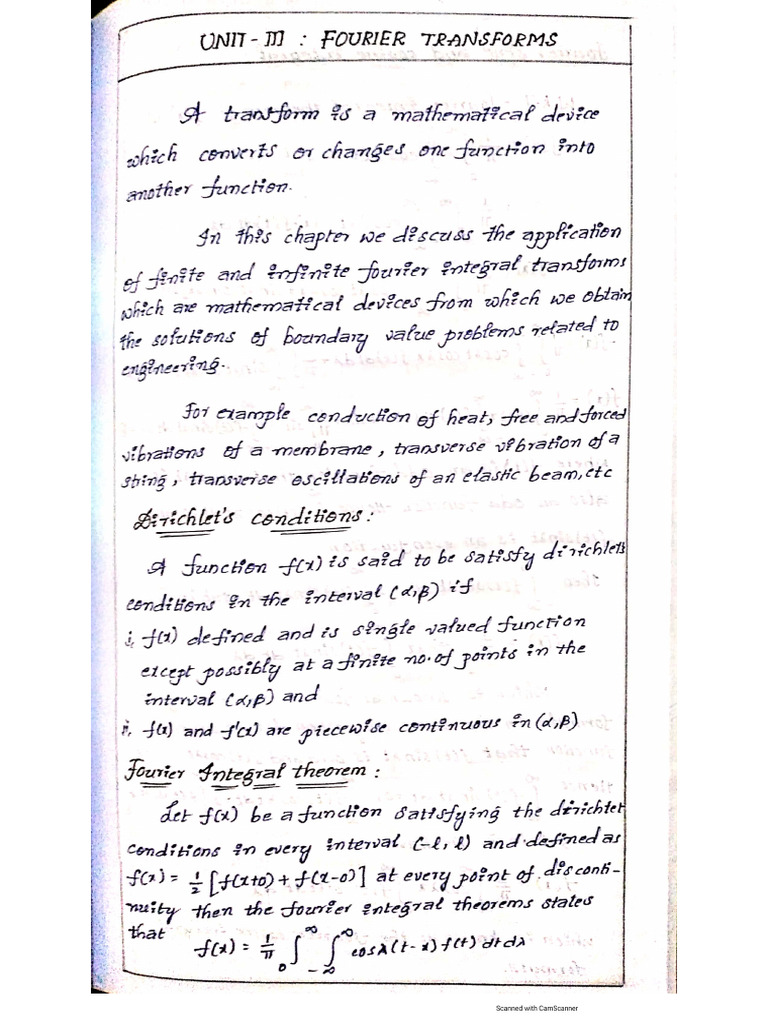 UNIT - III : FOURIER TRANSFORMS
A transform is a mathematical device
which converts or changes one function into
another function.
In this chapter we discuss the application
of finite and infinite fourier integral transforms
which are mathematical devices from which we obtain
the solutions of boundary value problems related to
engineering.
For example conduction of heat, free and forced
vibrations of a membrane, transverse vibration of a
string, transverse oscillations of an elastic beam, etc
Dirichlet's conditions :
A function f(x) is said to be satisfy dirichlets
conditions in the interval (α,β) if
i, f(x) defined and is single valued function
except possibly at a finite no. of points in the
interval (α,β) and
ii, f(x) and f'(x) are piecewise continuous in (α,β)
Fourier Integral theorem :
Let f(x) be a function satisfying the dirichlet
conditions in every interval (-l, l) and defined as
f(x) = 1/2 [f(x+0) + f(x-0)] at every point of disconti-
nuity then the fourier integral theorems states
that
f(x) = 1/π ∫₀^∞ ∫₋∞^∞ cosλ(t-x) f(t) dt dλ
Scanned with CamScanner